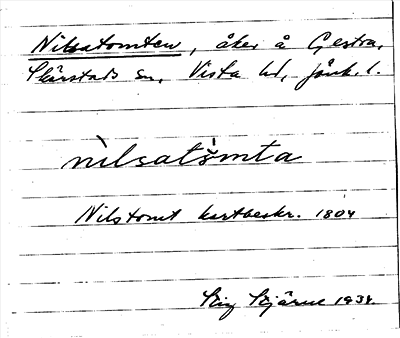 Nilsatomten, åker å Gestra,
Skärstads sn, Vista hd, Jönk. l.
nilsatömta
Nilstomt kartbeskr. 1804
Stig Bjärne 1934.